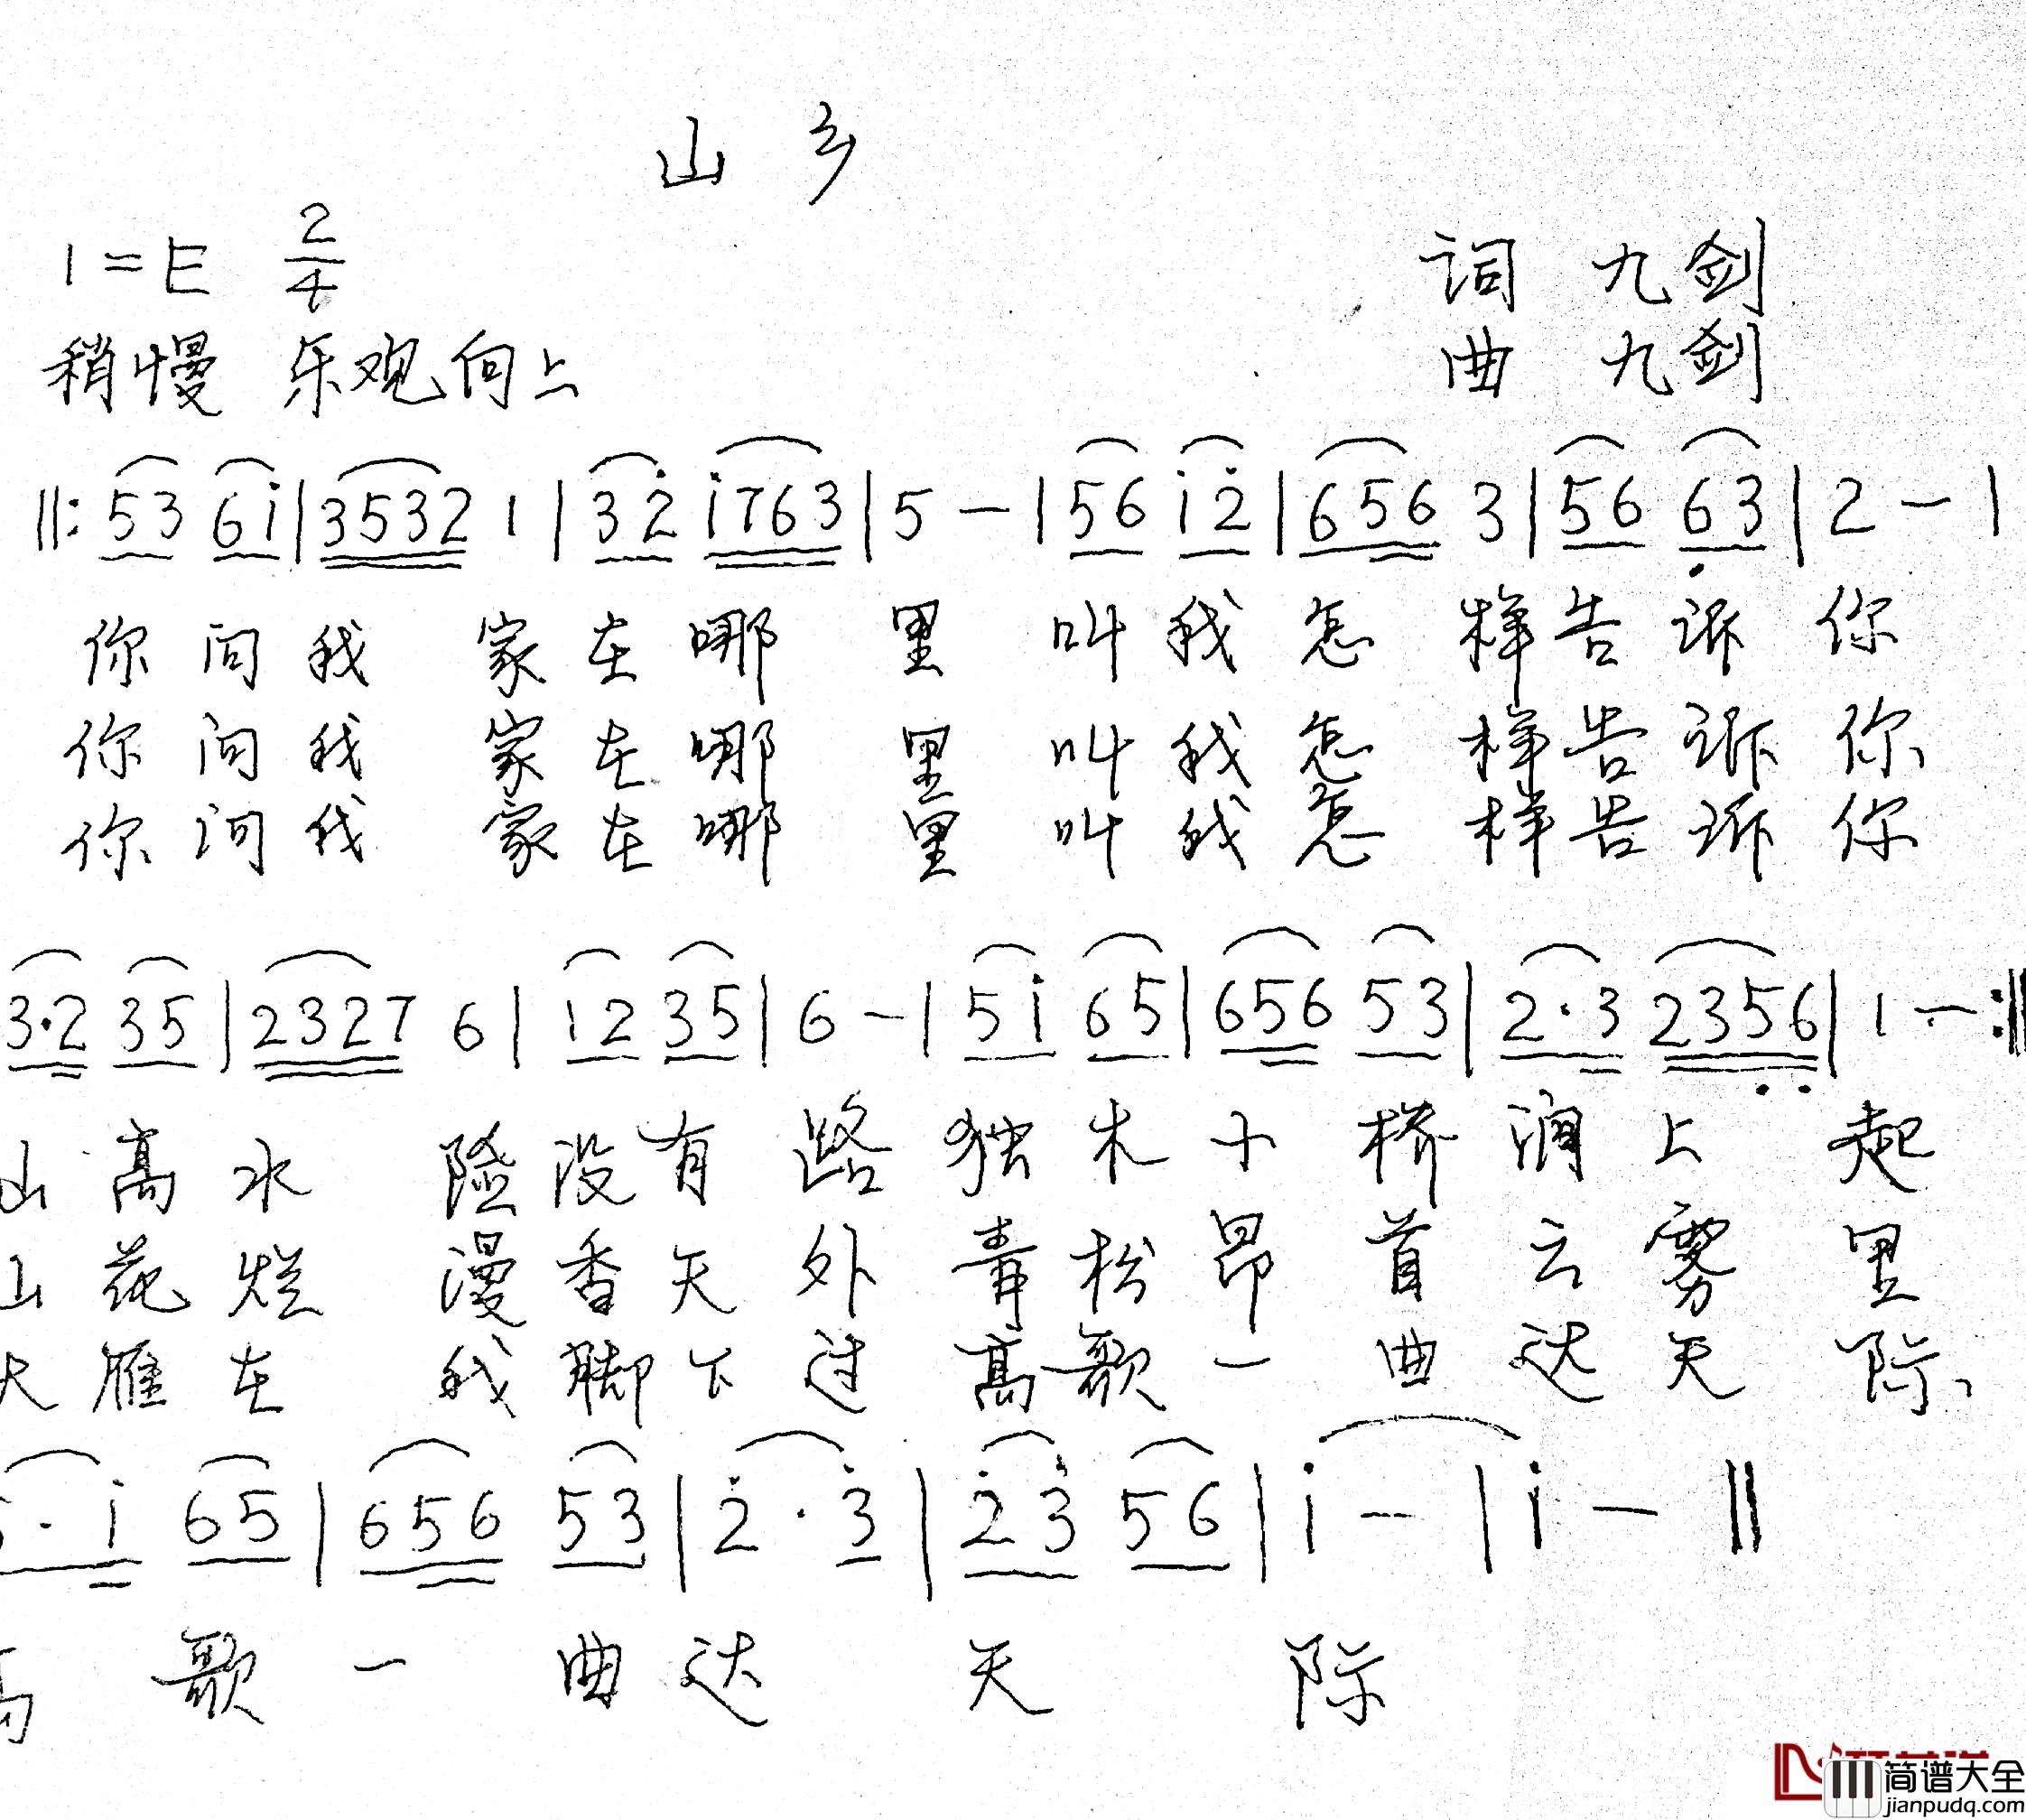 山乡
1=E 2/4
词 九剑
稍慢 乐观向上
曲 九剑
||: 53 6i | 3532 1 | 32̇ i763 | 5 - | 56 i2̇ | 656 3 | 56 6̣3 | 2 - |
你问我 家在哪 里 叫我怎 样告诉 你
你问我 家在哪 里 叫我怎 样告诉 你
你问我 家在哪 里 叫我怎 样告诉 你
3·2 35 | 2327 6 | i2 35 | 6 - | 5i 65 | 656 53 | 2·3 235̣6̣ | 1 - :||
山高水 险没有 路 独木小 桥涧上 起
山花烂 漫香天 外 青松昂 首云雾 里
大雁在 我脚下 过 高歌一 曲达天 际
· i 65 | 656 53 | 2̇ · 3̇ | 2̇3̇ 56 | i - | i - ||
高 歌 一 曲 达 天 际
简谱大全
jianpudq.com